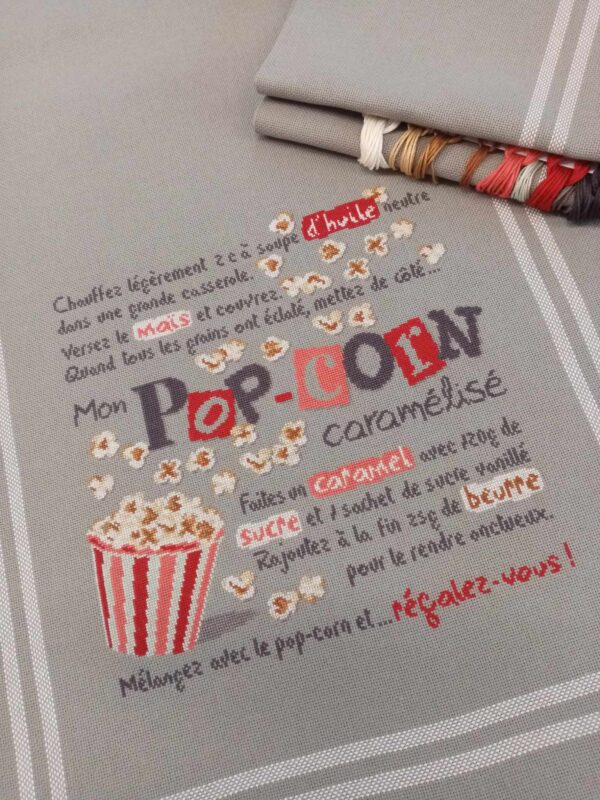 Chauffez légèrement 2 c à soupe d'huile neutre
dans une grande casserole.
Versez le maïs et couvrez.
Quand tous les grains ont éclaté, mettez de côté...
Mon POP-CORN
caramélisé
Faites un caramel avec 120g de
sucre et 1 sachet de sucre vanillé
Rajoutez à la fin 25g de beurre
pour le rendre onctueux.
Mélangez avec le pop-corn et...régalez-vous !